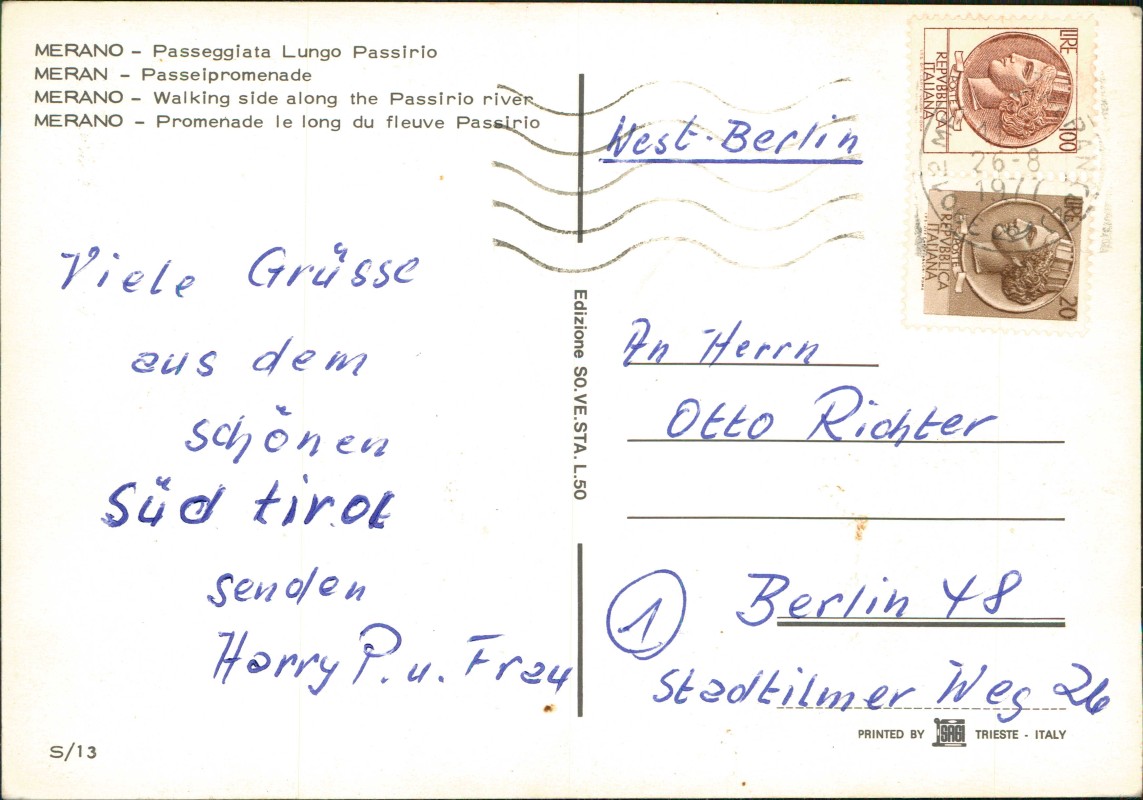 MERANO – Passeggiata Lungo Passirio
MERAN – Passeipromenade
MERANO – Walking side along the Passirio river
MERANO – Promenade le long du fleuve Passirio
Viele Grüsse
aus dem
schönen
Süd tirol
senden
Harry P. u. Frau
S/13
Edizione SO.VE.STA. L.50
LIRE 100
REPVBBLICA
ITALIANA
POSTE
26-8
1977
LIRE 20
REPVBBLICA
ITALIANA
POSTE
West-Berlin
An Herrn
Otto Richter
1
Berlin 48
Stadtilmer Weg 26
PRINTED BY SAGI TRIESTE - ITALY